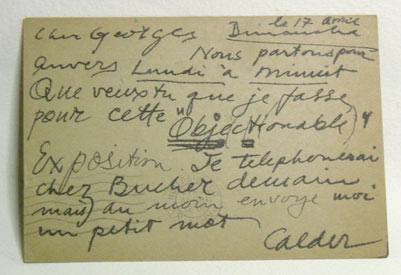 le 17 avril
Cher Georges Dimanche
Nous partons pour
anvers Lundi à minuit
Que veux tu que je fasse
pour cette "Objectionable"
Exposition. Je telephonerai
chez Bucher demain
mais au moin envoye moi
un petit mot
Calder